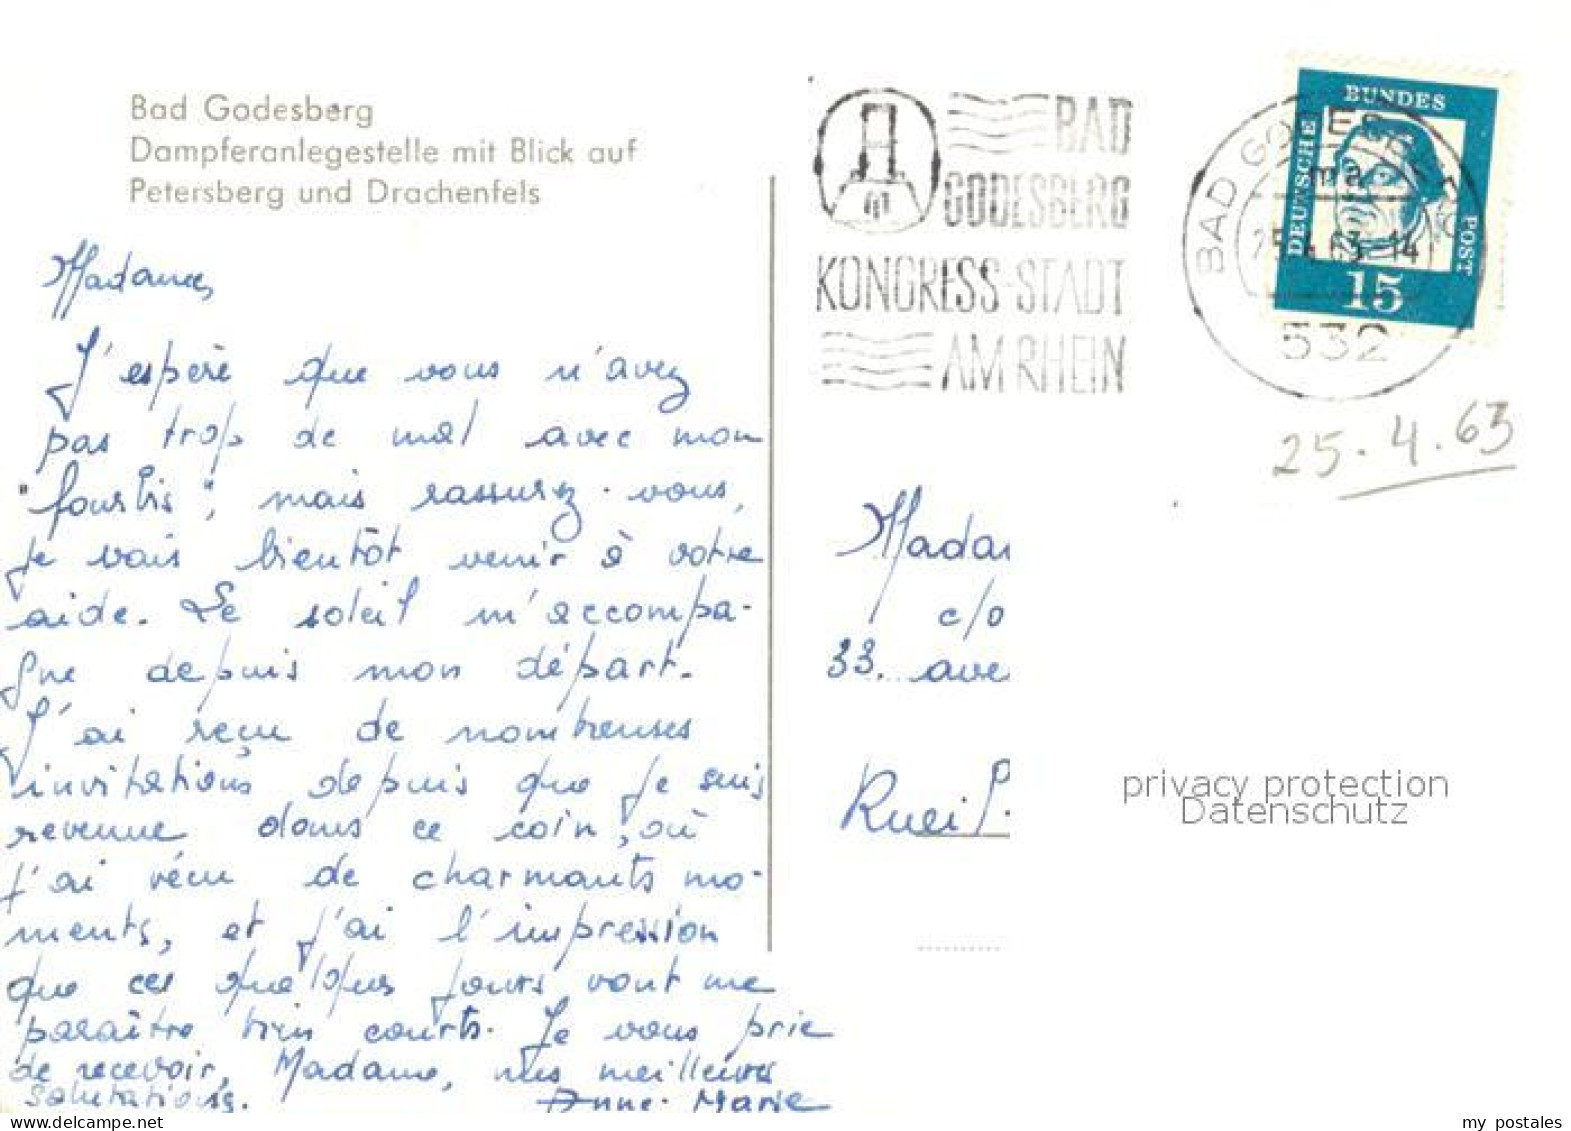 Bad Godesberg
Dampferanlegestelle mit Blick auf
Petersberg und Drachenfels
Madame,
J'espère que vous n'avez
pas trop de mal avec mon
"fourbis", mais rassurez-vous,
je vais bientôt venir à votre
aide. Le soleil m'accompa-
gne depuis mon départ.
J'ai reçu de nombreuses
invitations depuis que je suis
revenue dans ce coin, où
j'ai vécu de charmants mo-
ments, et j'ai l'impression
que ces quelques jours vont me
paraître bien courts. Je vous prie
de recevoir, Madame, mes meilleures
salutations. Anne-Marie
BAD
GODESBERG
KONGRESS-STADT
AM RHEIN
BAD GODESBERG
ma
25.4.63-14
532
DEUTSCHE
BUNDES
POST
15
25.4.63
Madam
c/o
33. ave
Rueil
privacy protection
Datenschutz
hippostcard.com
my postales